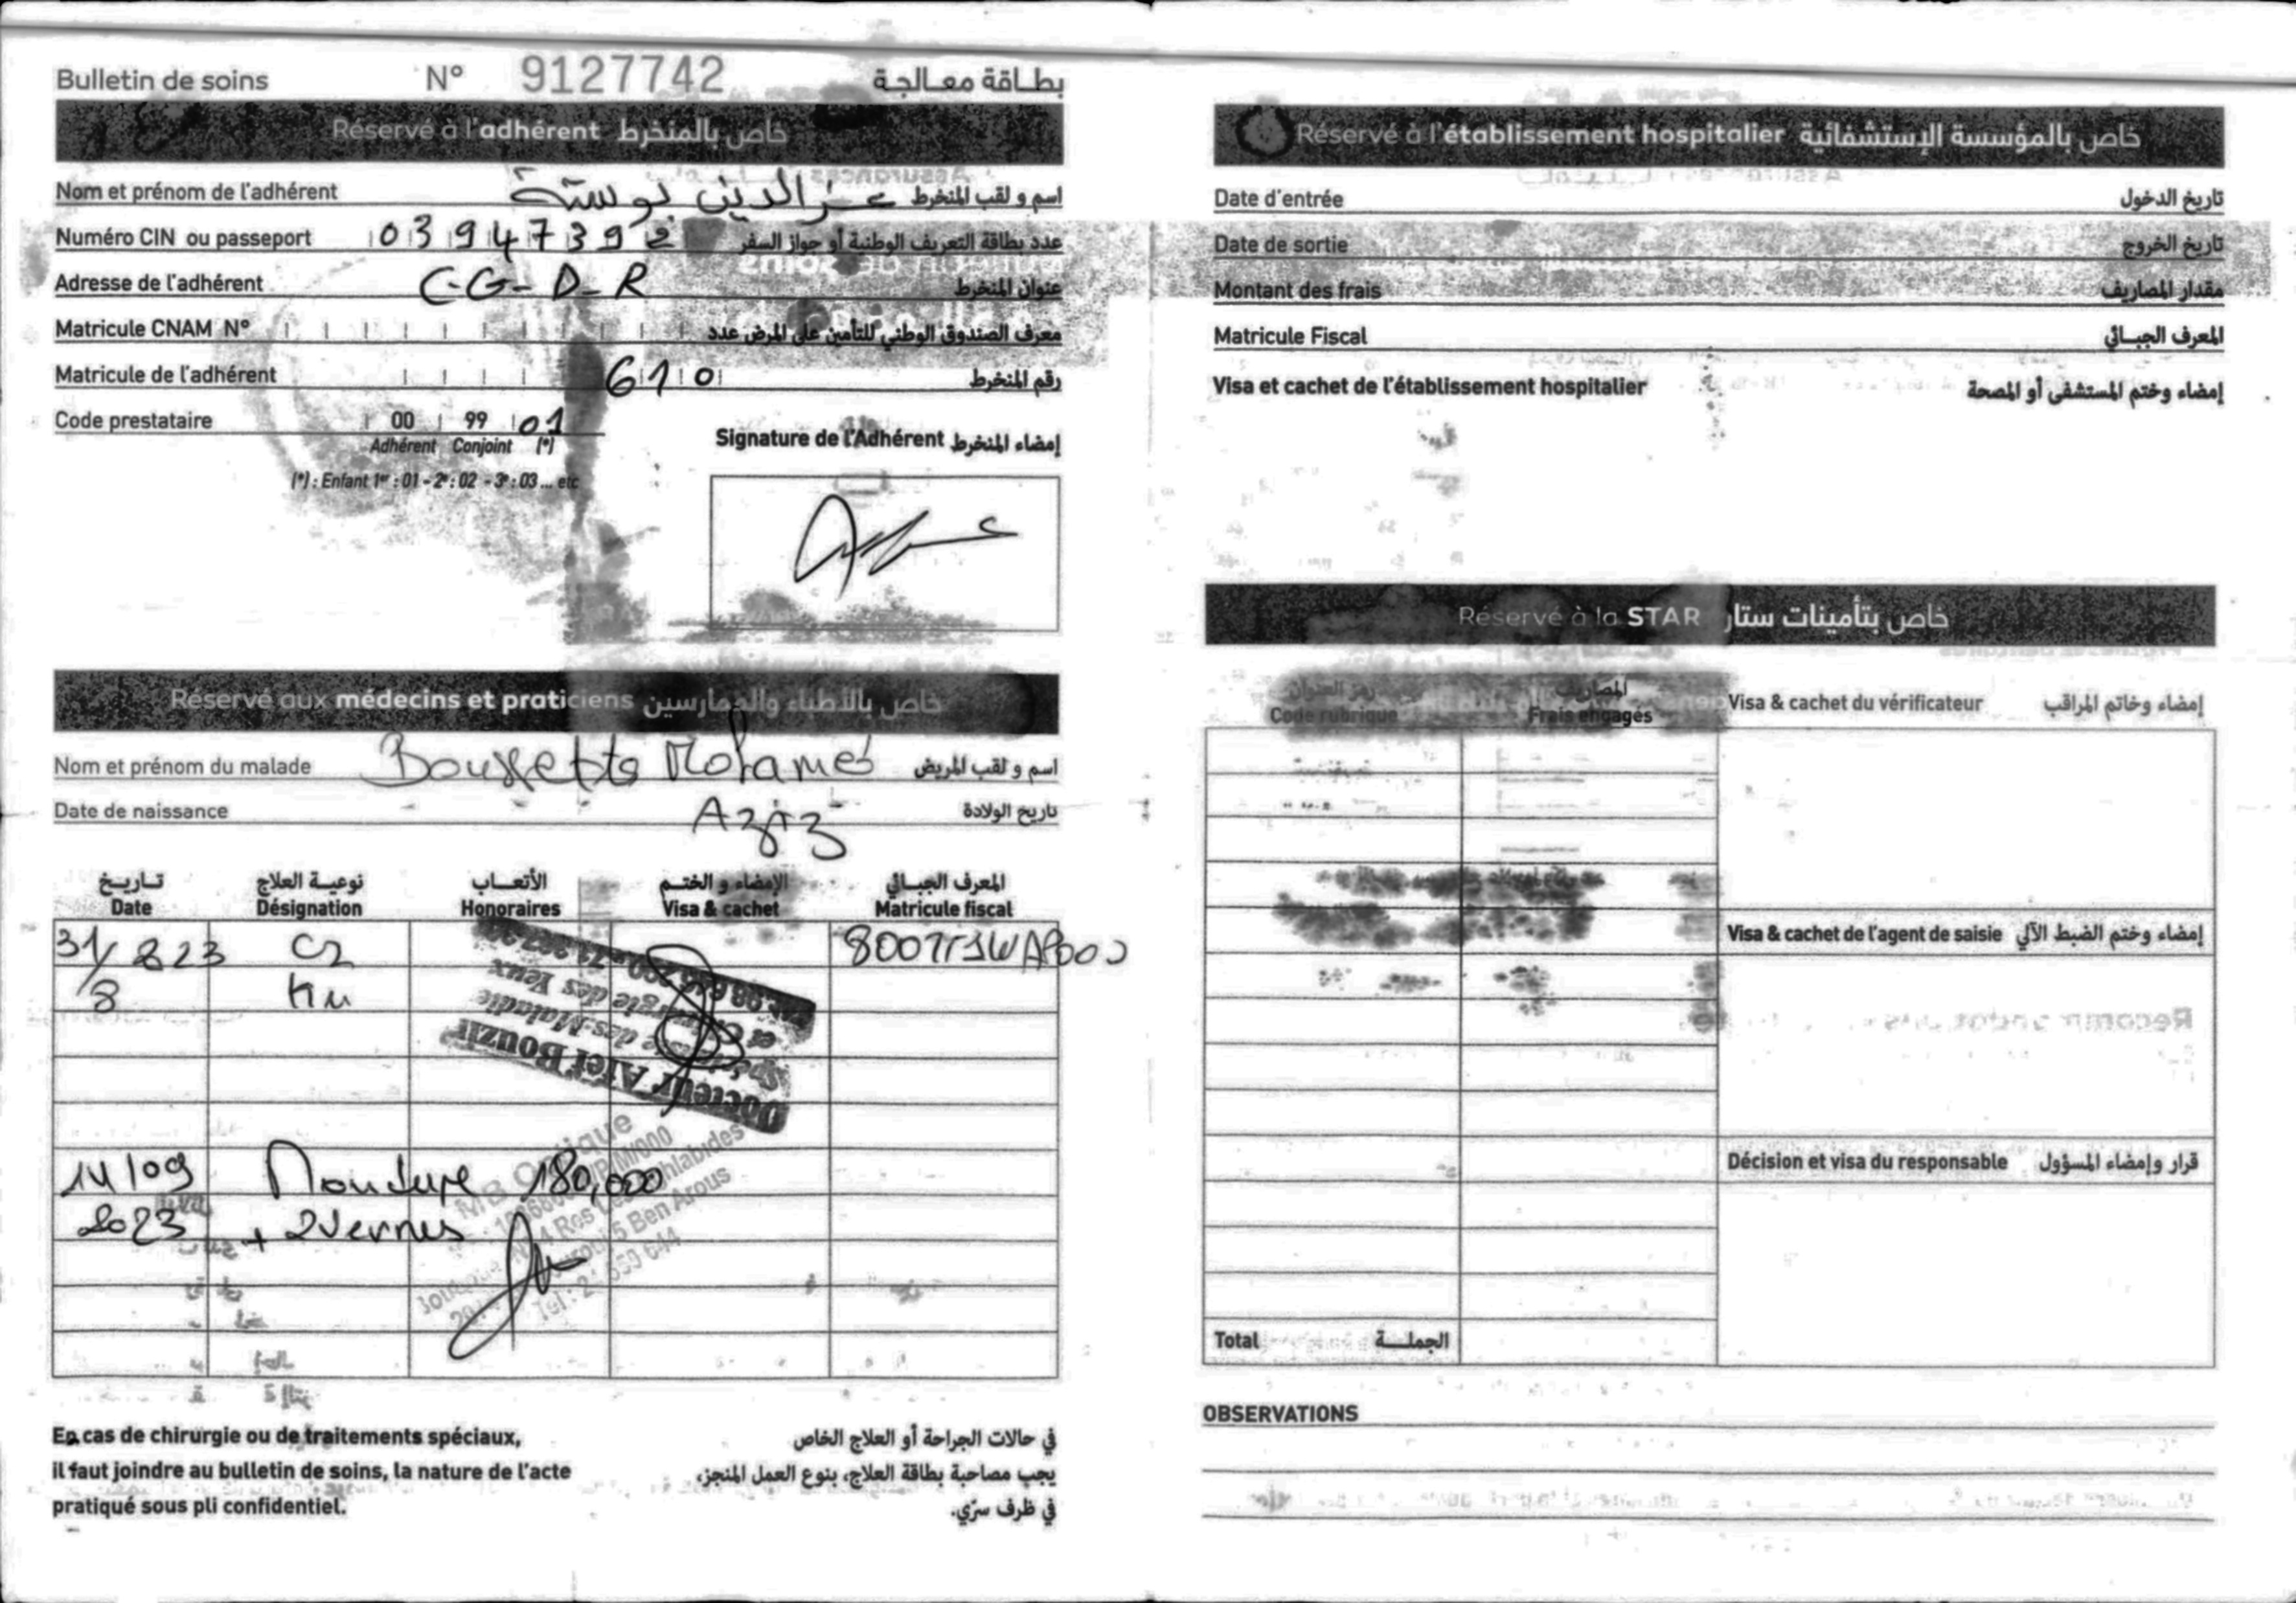 Bulletin de soins N° 9127742 بطاقة معالجة
Réservé à l'adhérent خاص بالمنخرط
Nom et prénom de l'adhérent عز الدين بوستة اسم و لقب المنخرط
Numéro CIN ou passeport 03947392 عدد بطاقة التعريف الوطنية أو جواز السفر
Adresse de l'adhérent C-G-D-R عنوان المنخرط
Matricule CNAM N° معرف الصندوق الوطني للتأمين على المرض عدد
Matricule de l'adhérent 610 رقم المنخرط
Code prestataire 00 99 01
Adhérent Conjoint (*)
(*) : Enfant 1er : 01 - 2e : 02 - 3e : 03 ... etc
Signature de l'Adhérent إمضاء المنخرط
Réservé aux médecins et praticiens خاص بالأطباء والممارسين
Nom et prénom du malade Boussetta Mohamed اسم و لقب المريض
Date de naissance Aziz تاريخ الولادة
تاريخ نوعية العلاج الأتعاب الإمضاء و الختم المعرف الجبائي
Date Désignation Honoraires Visa & cachet Matricule fiscal
31/8 23 C2
8
Docteur Atef Bouzir
Spécialiste des Maladie
et Chirurgie des Yeux
14/09 Monture 180,000
2023 + 2 Verres
MB Optique
Ben Arous
En cas de chirurgie ou de traitements spéciaux,
il faut joindre au bulletin de soins, la nature de l'acte
pratiqué sous pli confidentiel.
في حالات الجراحة أو العلاج الخاص
يجب مصاحبة بطاقة العلاج، بنوع العمل المنجز،
في ظرف سرّي.
Réservé à l'établissement hospitalier خاص بالمؤسسة الإستشفائية
Date d'entrée تاريخ الدخول
Date de sortie تاريخ الخروج
Montant des frais مقدار المصاريف
Matricule Fiscal المعرف الجبائي
Visa et cachet de l'établissement hospitalier إمضاء وختم المستشفى أو المصحة
Réservé à la STAR خاص بتأمينات ستار
رمز العنوان المصاريف
Code rubrique Frais engagés
Visa & cachet du vérificateur إمضاء وخاتم المراقب
Visa & cachet de l'agent de saisie إمضاء وختم الضبط الآلي
Décision et visa du responsable قرار وإمضاء المسؤول
Total الجملة
OBSERVATIONS